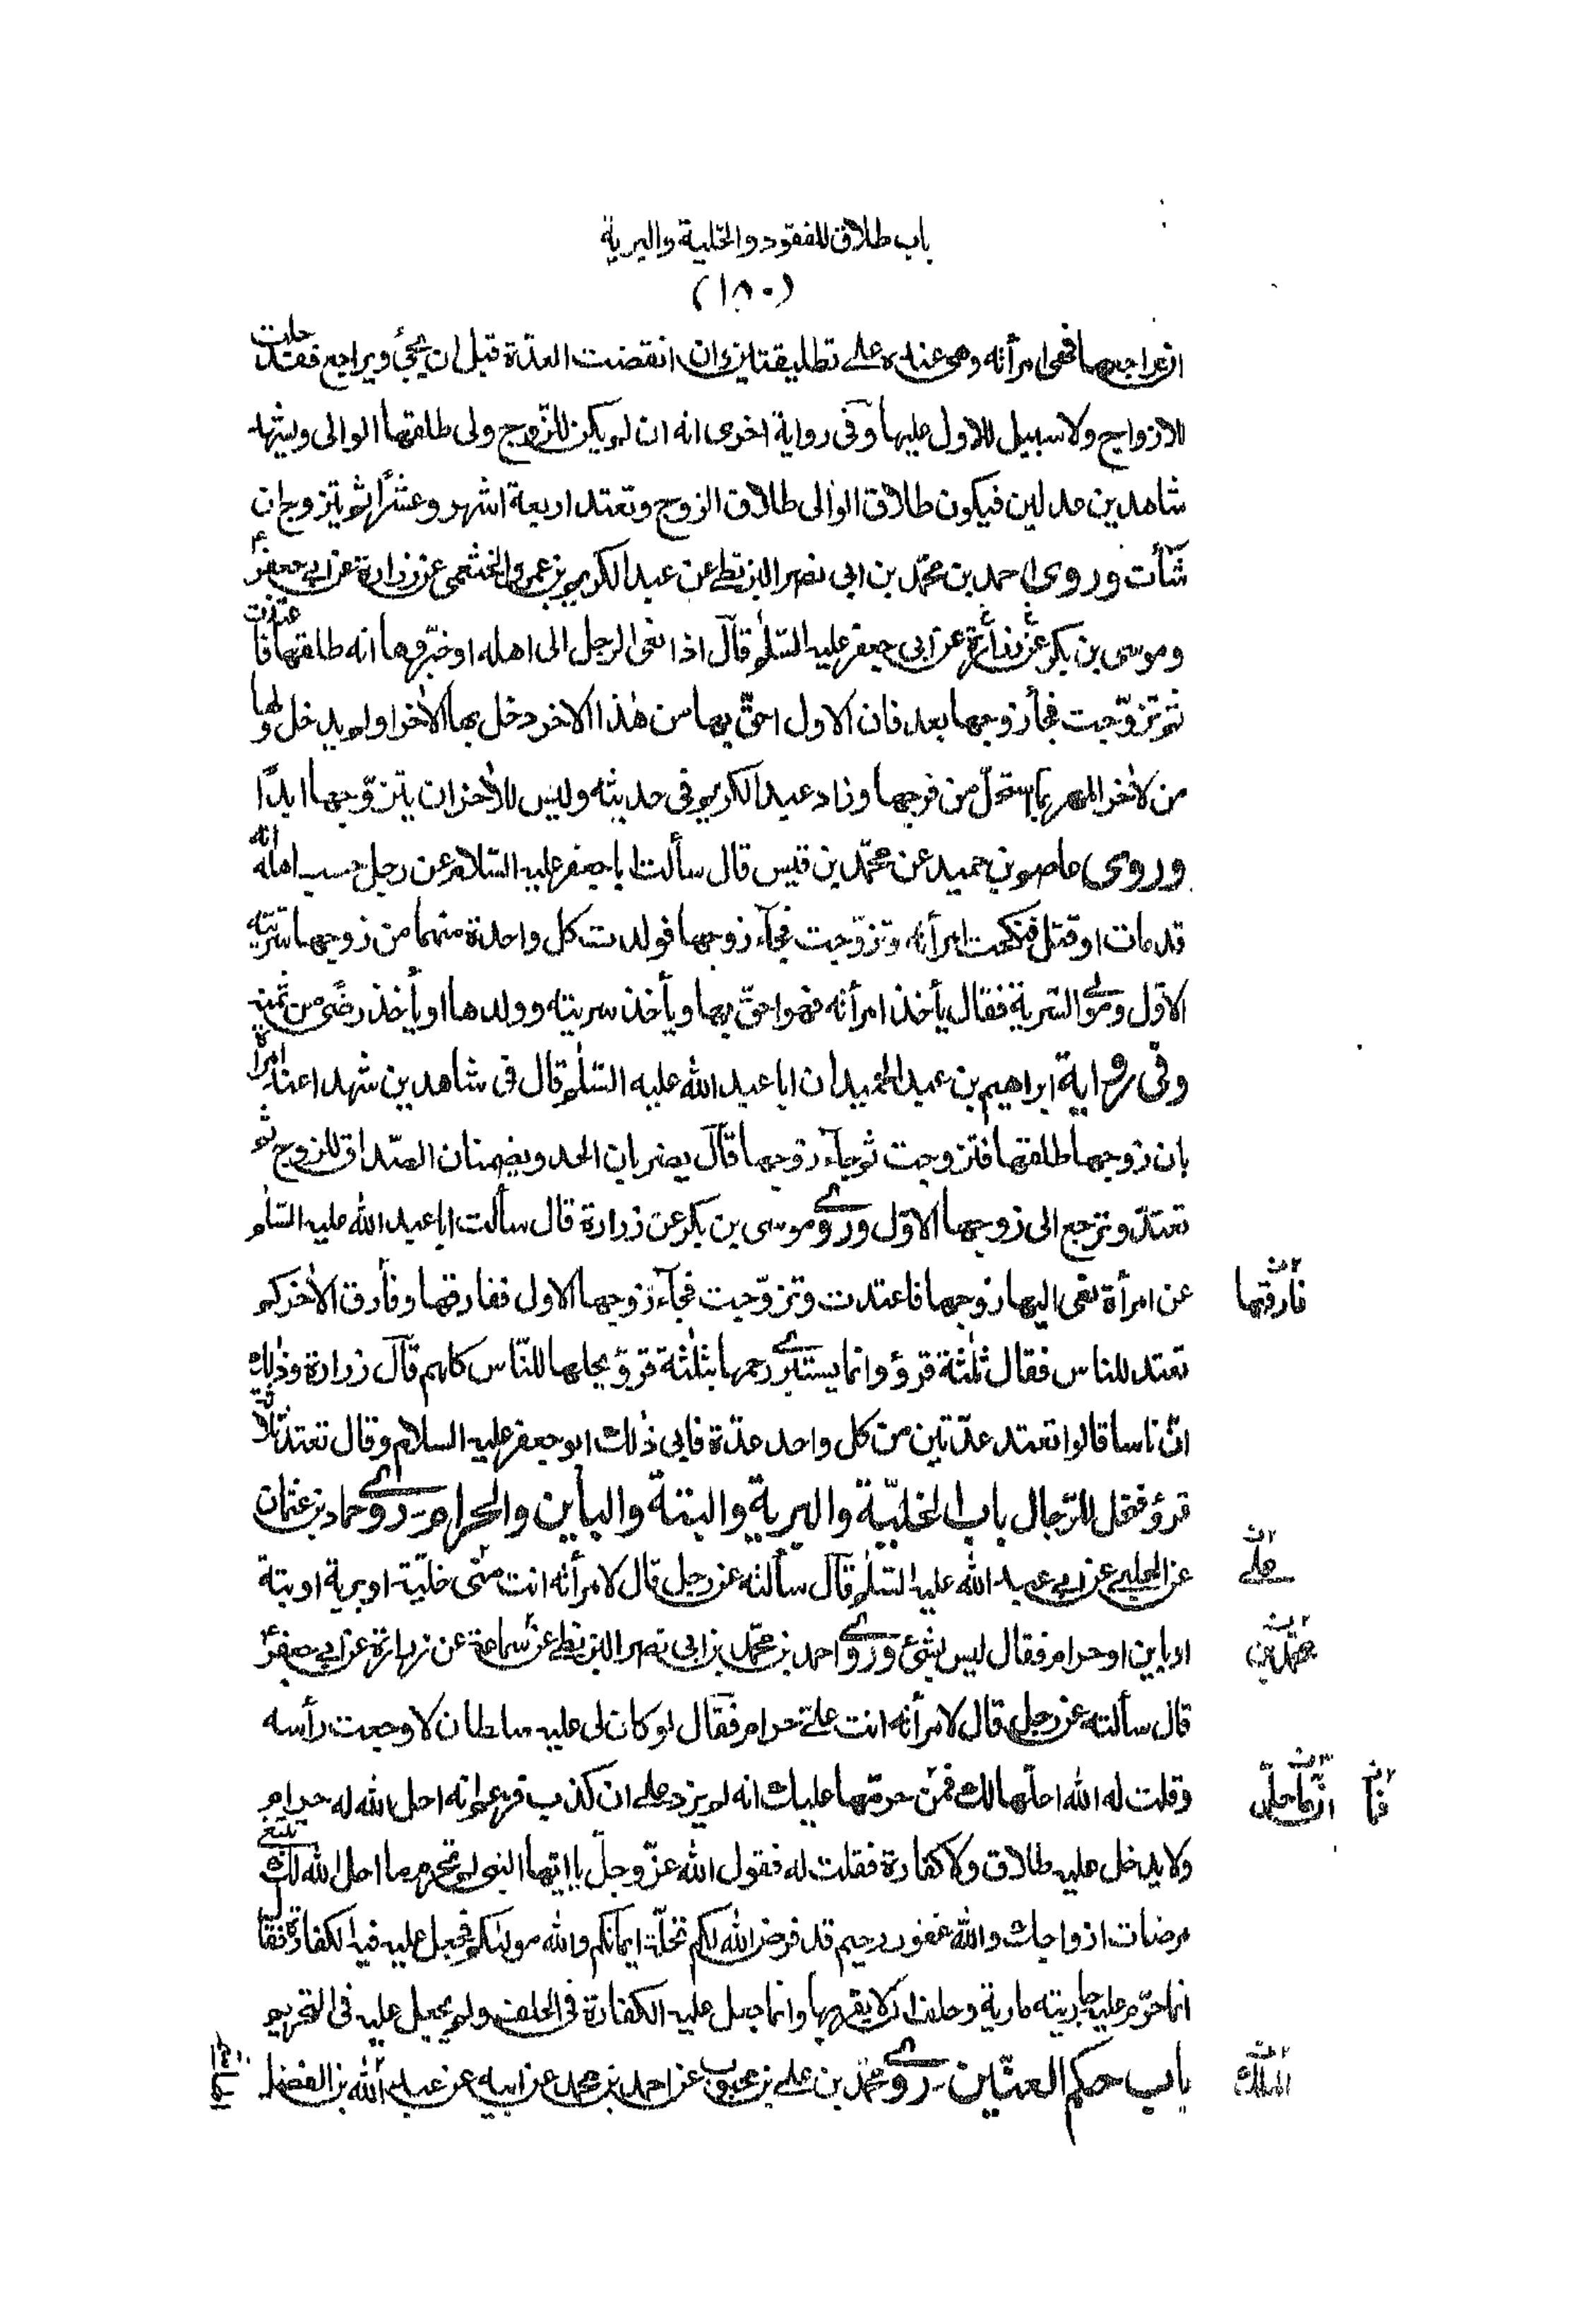 باب طلاق المفقود والخلية والبرية
(١٨٠)
ان راجعها فهي امرأته وهي عنده على تطليقتين وان انقضت العدّة قبل ان يجئ ويراجع فقد حلت
للازواج ولا سبيل للاول عليها وفى رواية اخرى انه ان لم يكن للزّوج ولى طلقها الوالى ويشهد
شاهدين عدلين فيكون طلاق الوالى طلاق الزوج وتعتد اربعة اشهر وعشرًا ثم تتزوج ان
شآءت وروى احمد بن محمّد بن ابى نصر البزنطى عن عبد الكريم بن عمرو الخثعمى عن زرارة عن ابى جعفر ع
وموسى بن بكر عن زرارة عن ابى جعفر عليه السّلم قال اذا نعى الرجل الى اهله او خبّروها انه طلقها فاعتدّت
ثم تزوّجت فجآء زوجها بعد فان الاول احق بها من هٰذا الاخر دخل بها الاخر او لم يدخل ولها
من الاخر المهر بما استحلّ من فرجها وزاد عبد الكريم فى حديثه وليس للاخر ان يتزوّجها ابدًا
وروى عاصم بن حميد عن محمّد بن قيس قال سألت ابا جعفر عليه السّلام عن رجل حسب اهله انه
قد مات او قتل فنكحت امرأته وتزوّجت فجآء زوجها فولدت كل واحدة منهما من زوجها سريته
الاوّل ومولى السّرية فقال يأخذ امرأته فهو احقّ بها ويأخذ سريته وولدها او يأخذ رضًى من ثمنه
وفى رواية ابراهيم بن عبد الحميد ان ابا عبد الله عليه السّلم قال فى شاهدين شهدا عند امرأة
بان زوجها طلقها فتزوجت ثم جآء زوجها قال يضربان الحد ويضمنان الصّداق للزوج ثم
تعتدّ وترجع الى زوجها الاوّل وروى موسى بن بكر عن زرارة قال سألت ابا عبد الله عليه السّلم
عن امرأة نعى اليها زوجها فاعتدت وتزوّجت فجآء زوجها الاول ففارقها وفارق الاخر كم
فارقها
تعتد للناس فقال ثلثة قروء وانما يستبرئ رحمها بثلثة قروء يحلها للنّاس كلهم قال زرارة وذٰلك
انّ ناسا قالوا تعتد عدّتين من كل واحد عدّة فابى ذٰلك ابو جعفر عليه السلام وقال تعتد ثلاثة
قروء فتحل للرّجال باب الخليّة والبرية والبتة والباين والحرام روى حماد بن عثمان
عن الحلبى عن ابى عبد الله عليه السّلم قال سألته عن رجل قال لامرأته انت منّى خليّة او برية او بتة
على
او باين او حرام فقال ليس بشئ وروى احمد بن محمّد بن ابى نصر البزنطى عن سماعة عن زرارة عن ابى جعفر ع
محمّد بن
قال سألته عن رجل قال لامرأته انت علىّ حرام فقال لو كان لى عليه سلطان لاوجعت رأسه
وقلت له الله احلّها لك فمن حرمّها عليك انه لم يزد على ان كذب فزعم انه احل الله له حرام
فما
ولا يدخل عليه طلاق ولا كفارة فقلت له فقول الله عزّ وجلّ يا ايّها النبى لم تحرم ما احل الله لك تبتغى
مرضات ازواجك والله غفور رحيم قد فرض الله لكم تحلّة ايمانكم والله مولٰيكم فجعل عليه فيه الكفارة فقال
انما حرّم عليه جاريته مارية وحلف ان لا يقربها وانما جعل عليه الكفارة فى الحلف ولم يجعل عليه فى التحريم
باب حكم العنّين روى محمّد بن على بن محبوب عن احمد بن محمد عن ابيه عن عبد الله بن الفضل